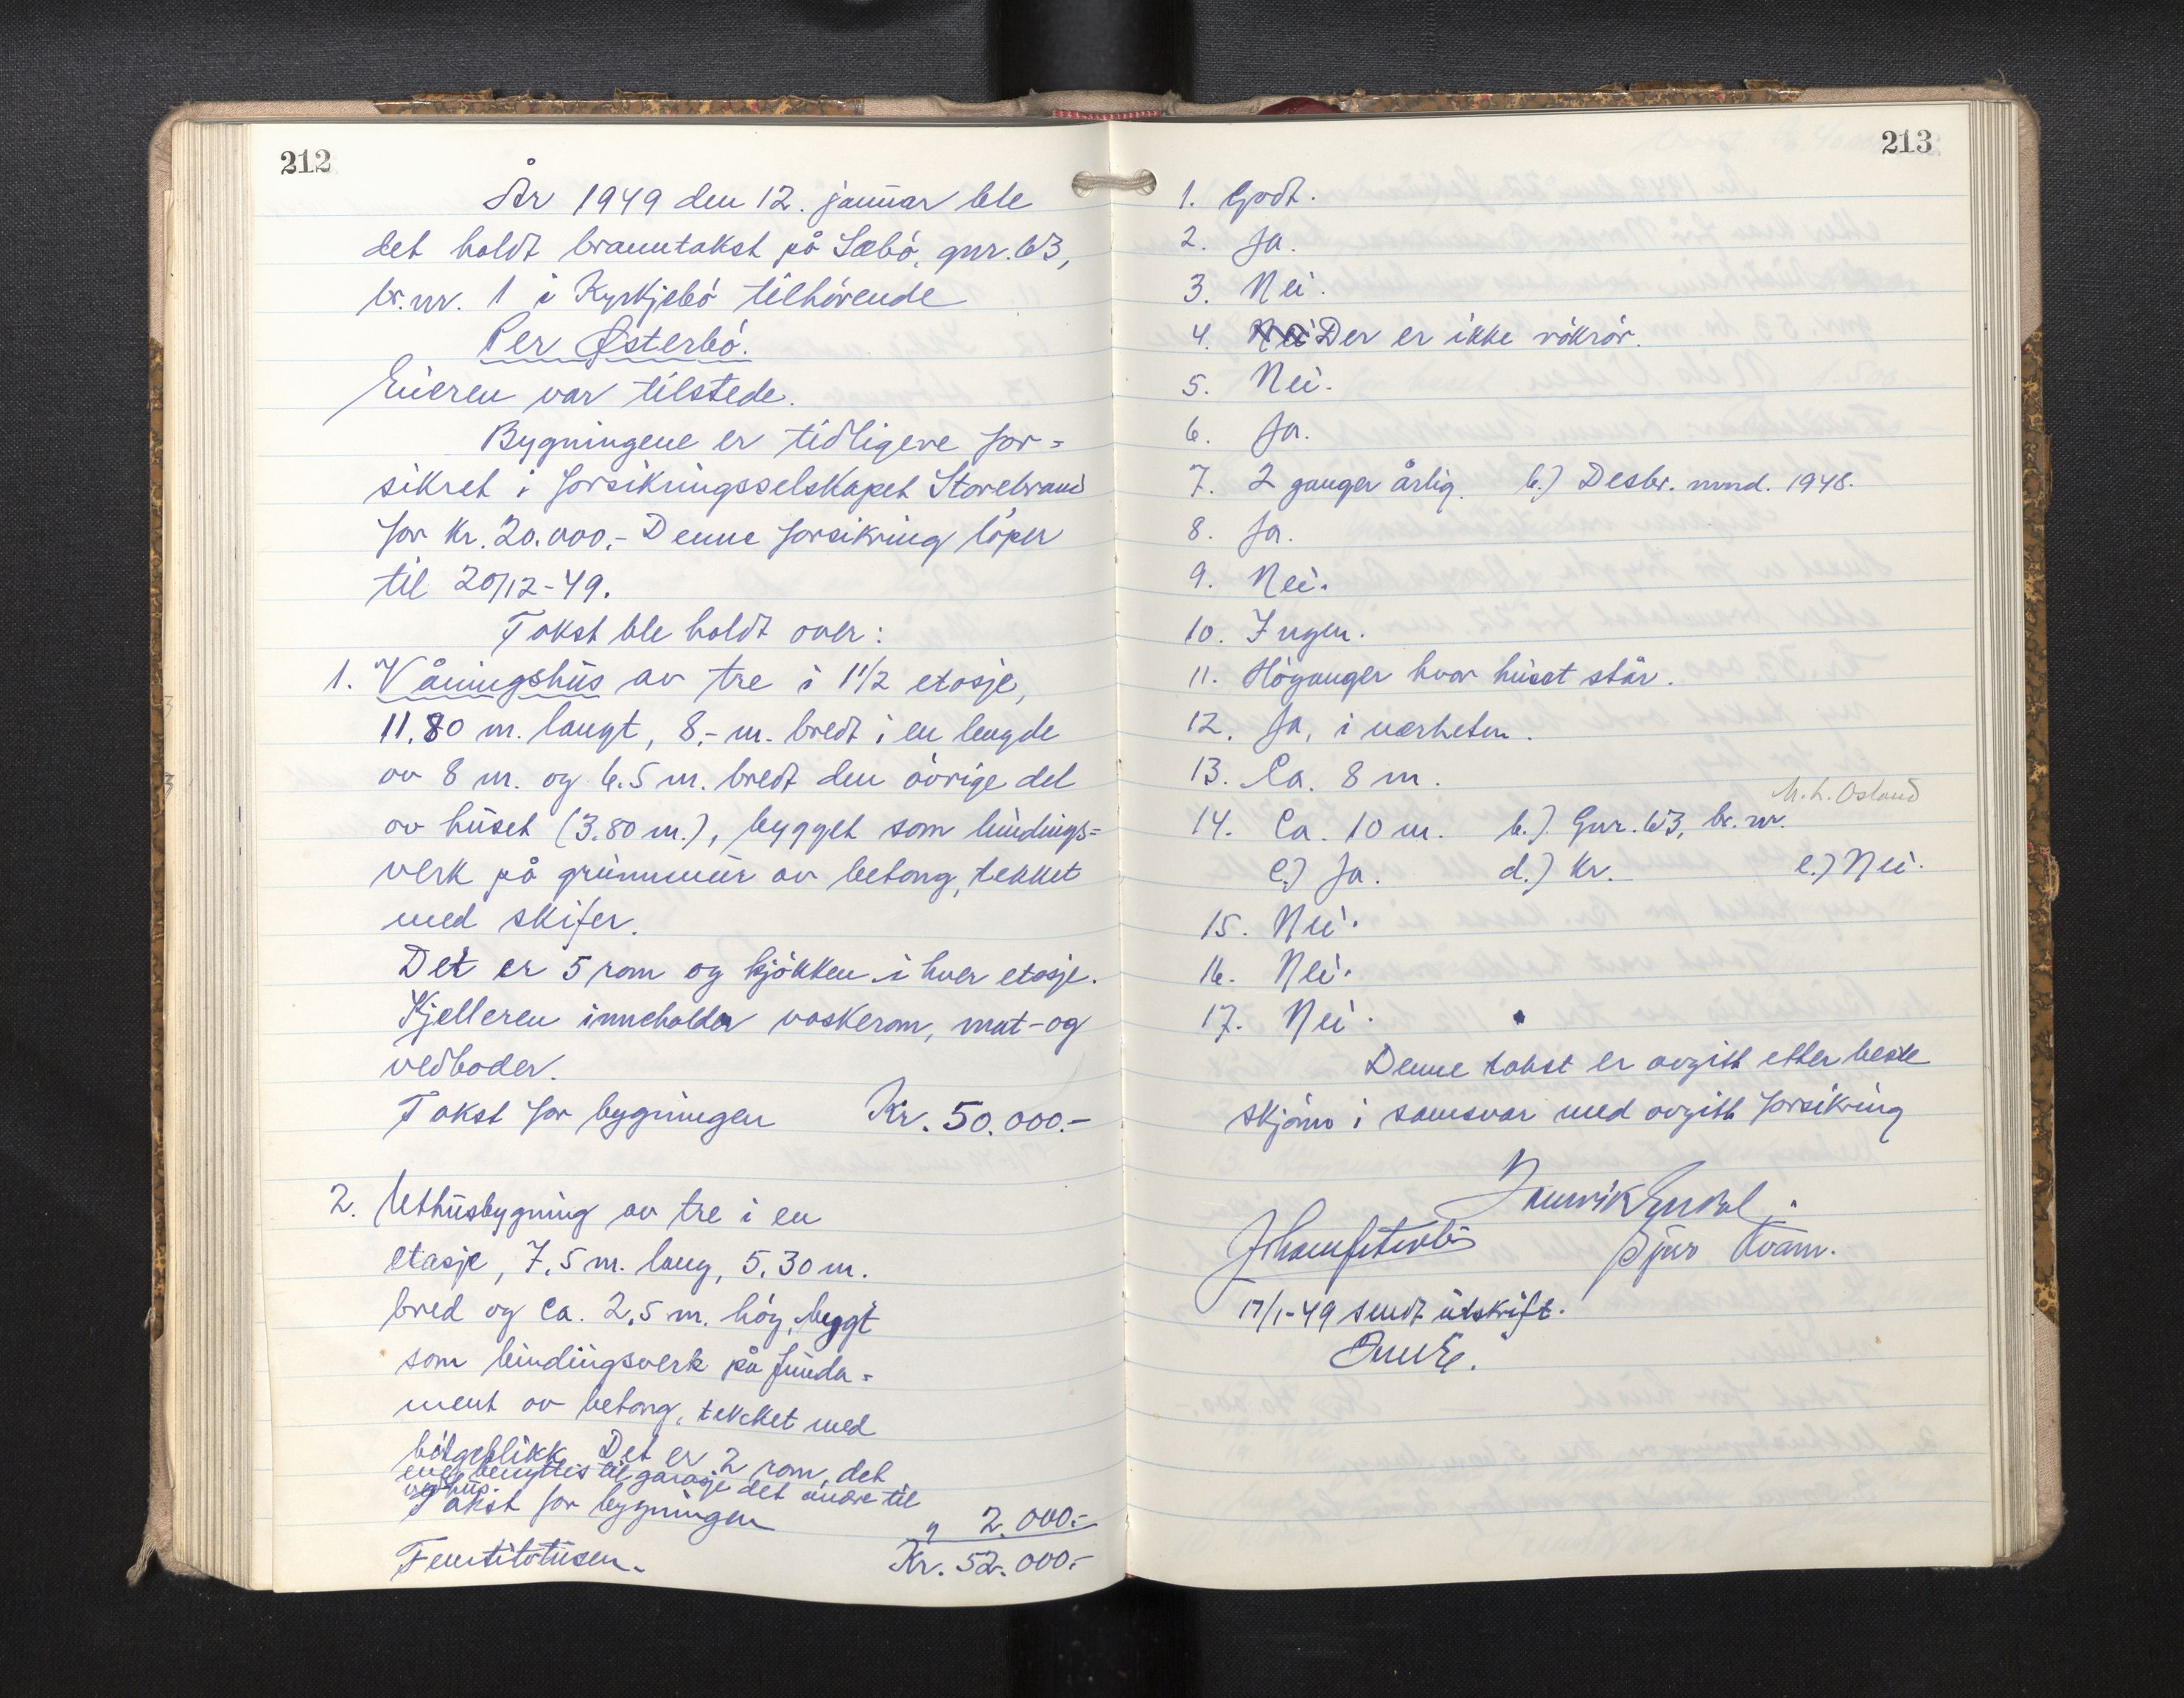 212
År 1949 den 12. januar ble
det holdt branntakst på Sæbö, gnr. 63,
br.nr. 1 i Kyrkjebö tilhörende
Per Østerbö.
Eieren var tilstede.
Bygningene er tidligere for=
sikret i forsikringsselskapet Storebrand
for kr. 20.000.- Denne forsikring löper
til 20/12-49.
Takst ble holdt over:
1. Våningshus av tre i 1 1/2 etasje,
11,80 m. langt, 8,- m. bredt i en lengde
av 8 m. og 6.5 m. bredt den övrige del
av huset (3.80 m.), bygget som bindings=
verk på grunnmur av betong, tekket
med skifer.
Det er 5 rom og kjökken i hver etasje.
Kjelleren inneholder vaskerom, mat-og
vedboder.
Takst for bygningen Kr. 50.000.-
2. Uthusbygning av tre i en
etasje, 7,5 m. lang, 5,30 m.
bred og ca. 2,5 m. hög, bygt
som bindingsverk på funda=
ment av betong, tekket med
bölgeblikk. Det er 2 rom, det
ene benyttes til garasje det andre til
vedhus.
Takst for bygningen " 2.000.-
Femtitotusen. Kr. 52.000.-
213
1. Godt.
2. Ja.
3. Nei.
4. Nei Der er ikke rökrör.
5. Nei.
6. Ja.
7. 2 ganger årlig. b.) Desbr. mnd. 1948.
8. Ja.
9. Nei.
10. Ingen.
11. Höyanger hvor huset står.
12. Ja, i nærheten.
13. Ca. 8 m.
M. L. Osland
14. Ca. 10 m. b.) Gnr. 63, br. nr.
c.) Ja. d.) Kr. e.) Nei.
15. Nei.
16. Nei.
17. Nei.
Denne takst er avgitt etter beste
skjönn i samsvar med avgitt forsikring
Sjur Kvam.
17/1-49 sendt utskrift.